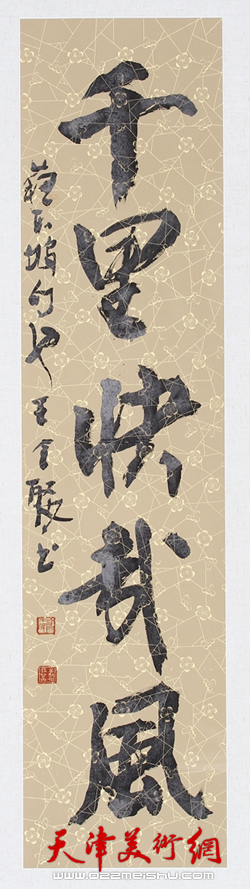 千里快哉風
蘓东坡句也 王全聚书
天津美術網
www.022meishu.com